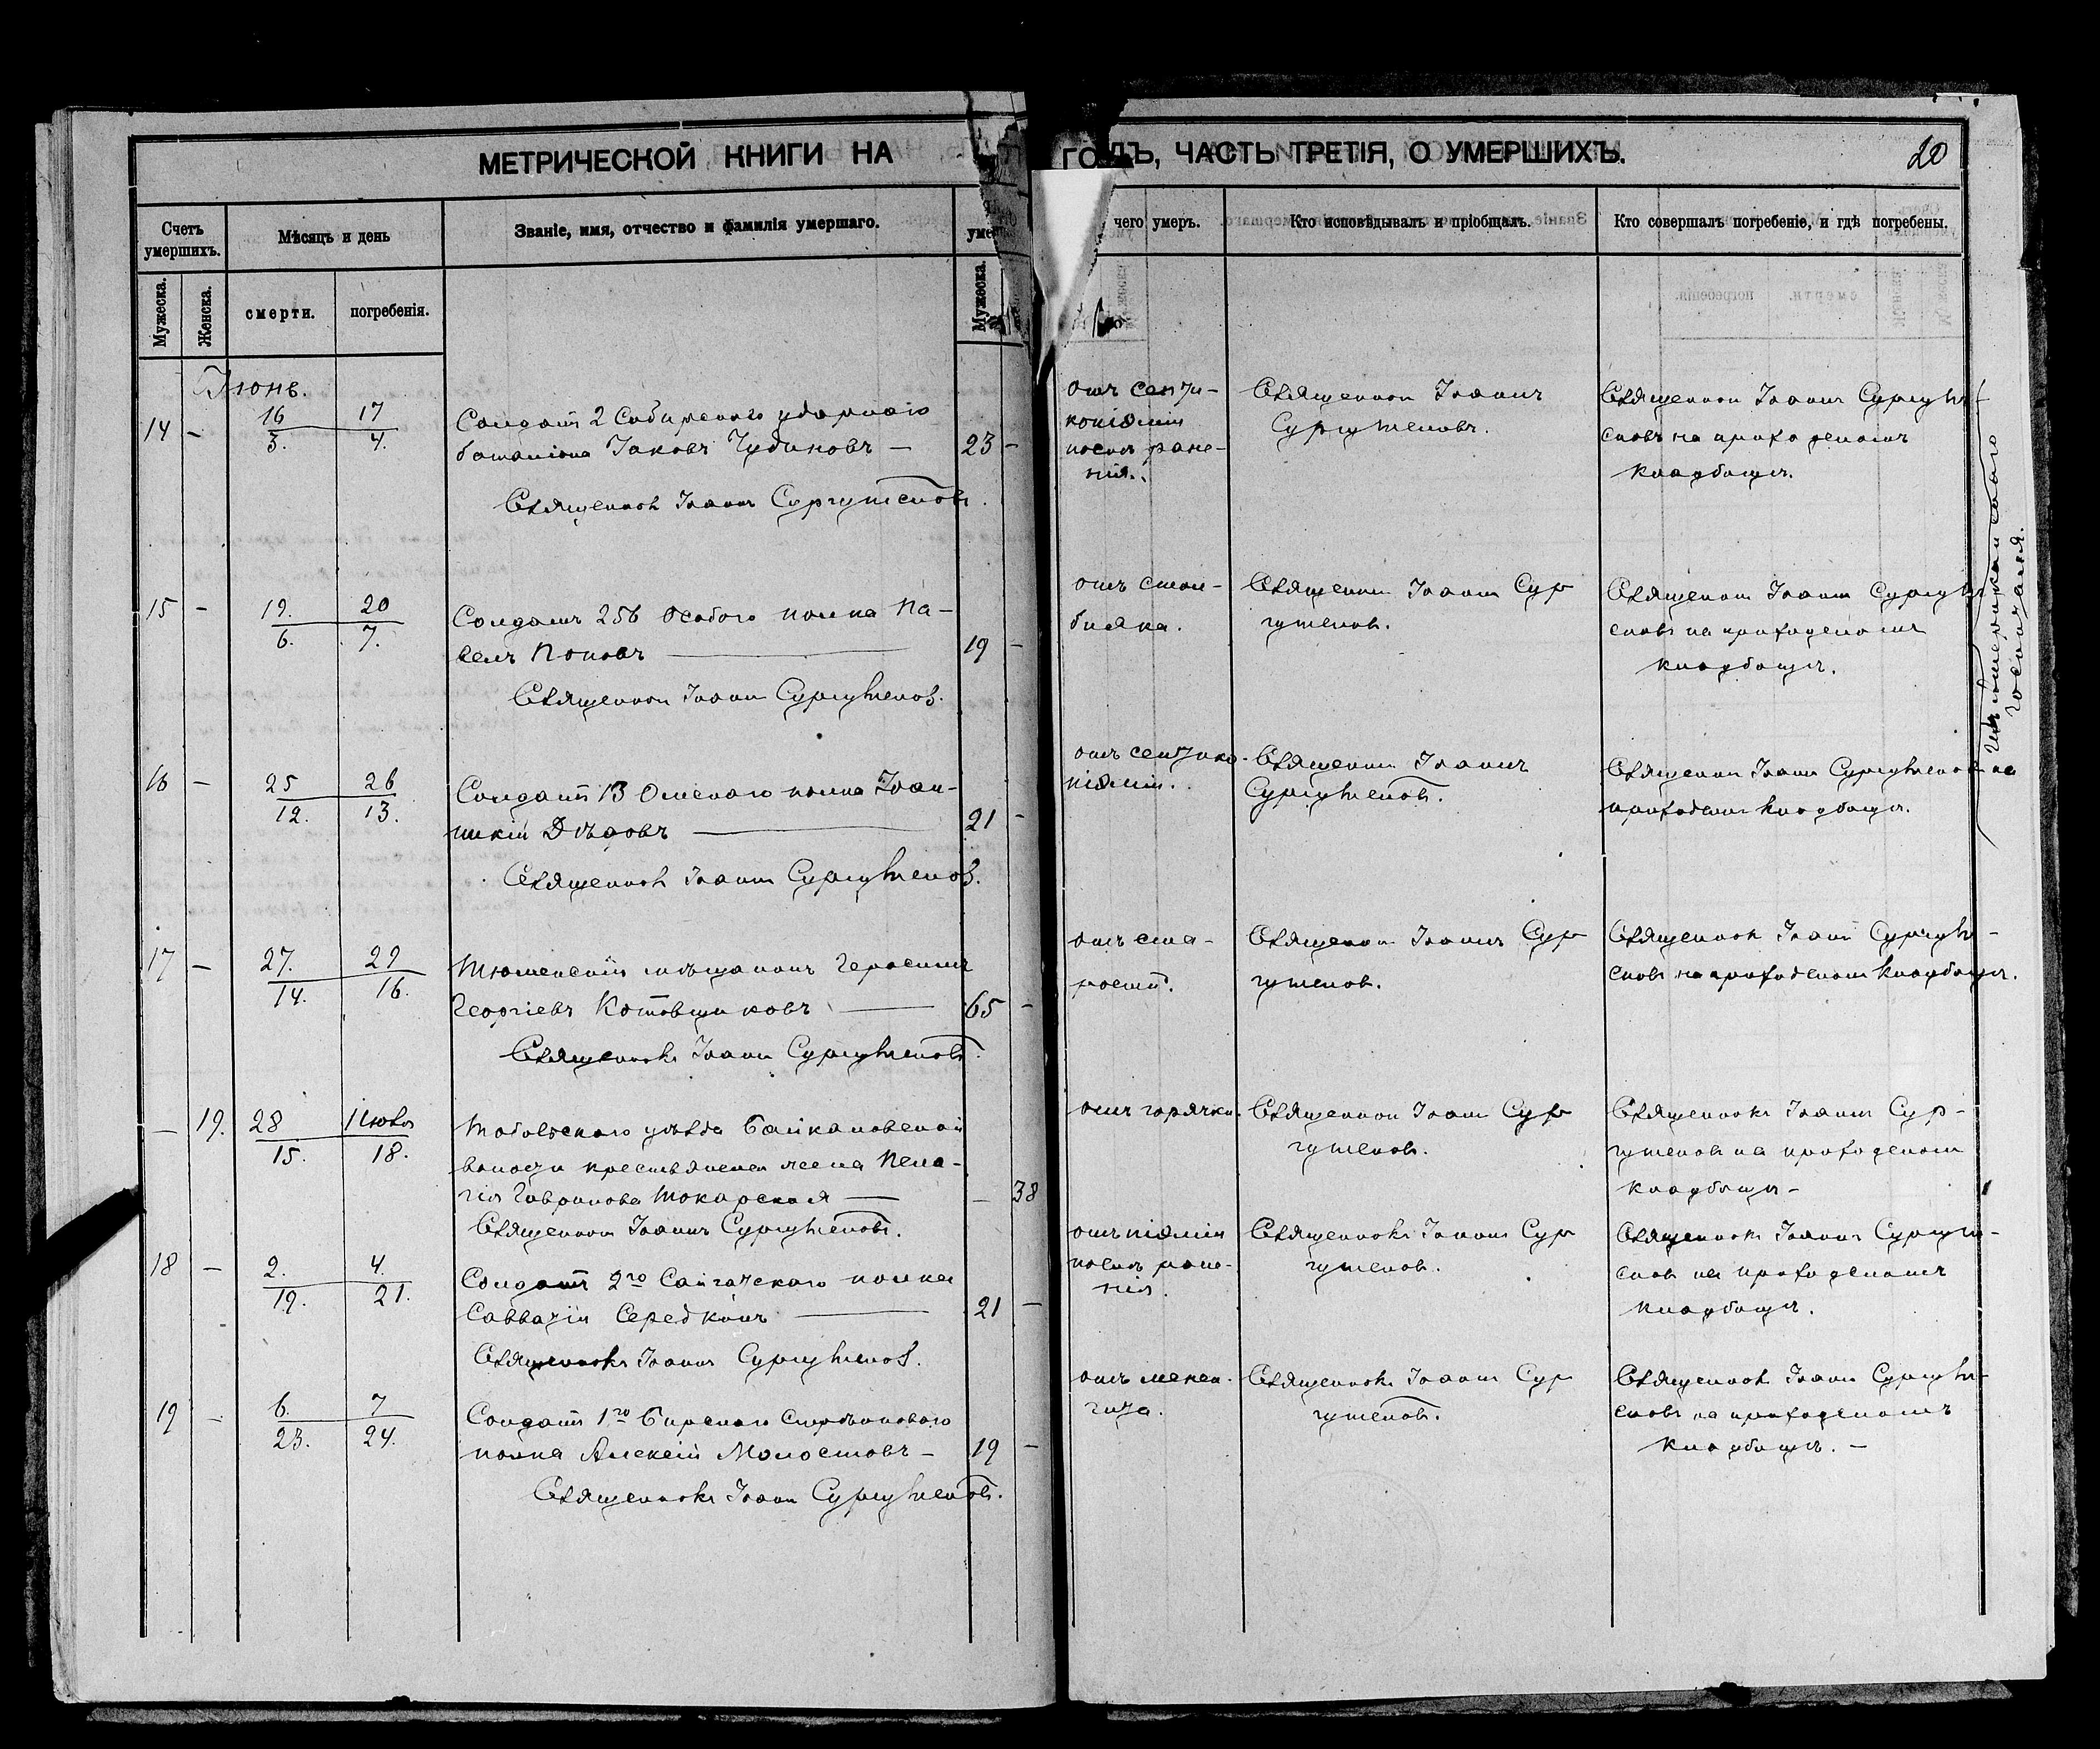 МЕТРИЧЕСКОЙ КНИГИ НА
ГОДЪ, ЧАСТЬ ТРЕТІЯ, О УМЕРШИХЪ.
20
Счетъ умершихъ.
Мѣсяцъ и день
Званіе, имя, отчество и фамилія умершаго.
чего умеръ.
Кто исповѣдывалъ и пріобщалъ.
Кто совершалъ погребеніе, и гдѣ погребены.
Мужеска.
Женска.
смерти.
погребенія.
Мужеска.
Іюнь.
14 - 16 17
3. 4.
Солдатъ 2 Сибирскаго ударнаго
баталіона Іаковъ Чудиновъ — 23 -
Священникъ Іоаннъ Сургутсковъ.
піэміи
послѣ ране-
нія.
Священникъ Іоаннъ
Сургутсковъ.
Священникъ Іоаннъ Сургут-
сковъ на приходскомъ
кладбищѣ.
15 - 19. 20
6. 7.
Солдатъ 256 Особого полка Па-
велъ Поповъ 19 -
Священникъ Іоаннъ Сургутсковъ.
отъ столб-
няка.
Священникъ Іоаннъ Сур
гутсковъ.
Священникъ Іоаннъ Сургут
сковъ на приходскомъ
кладбищѣ.
16 - 25 26
12. 13.
Солдатъ 13 Омскаго полка Іоан-
никій Дѣдовъ 21 -
Священникъ Іоаннъ Сургутсковъ.
отъ септико-
піэміи.
Священникъ Іоаннъ
Сургутсковъ.
Священникъ Іоаннъ Сургутсковъ на
приходскомъ кладбищѣ.
17 - 27. 29
14. 16.
Тюменскій мѣщанинъ Герасимъ
Георгіевъ Котовщиковъ 65 -
Священникъ Іоаннъ Сургутсковъ.
отъ ста-
рости.
Священникъ Іоаннъ Сур
гутсковъ.
Священникъ Іоаннъ Сургут-
сковъ на приходскомъ кладбищѣ.
— 19. 28 1 Іюля
15. 18.
Тобольскаго уѣзда Байкаловской
волости крестьянская жена Пела-
гія Гаврилова Токарская — — 38
Священникъ Іоаннъ Сургутсковъ.
отъ горячки.
Священникъ Іоаннъ Сур
гутсковъ.
Священникъ Іоаннъ Сур-
гутсковъ на приходскомъ
кладбищѣ-
18 - 2. 4.
19. 21.
Солдатъ 2го Сайгатскаго полка
Савватій Середкинъ 21 -
Священникъ Іоаннъ Сургутсковъ.
отъ піэміи
послѣ ране-
нія.
Священникъ Іоаннъ Сур
гутсковъ.
Священникъ Іоаннъ Сургут-
сковъ на приходскомъ
кладбищѣ.
19 - 6. 7
23. 24.
Солдатъ 1го Бирскаго Стрѣлковаго
полка Алексій Молостовъ — 19 -
Священникъ Іоаннъ Сургутсковъ.
отъ менен-
гита.
Священникъ Іоаннъ Сур
гутсковъ.
Священникъ Іоаннъ Сургут-
сковъ на приходскомъ
кладбищѣ. —
госпиталя.